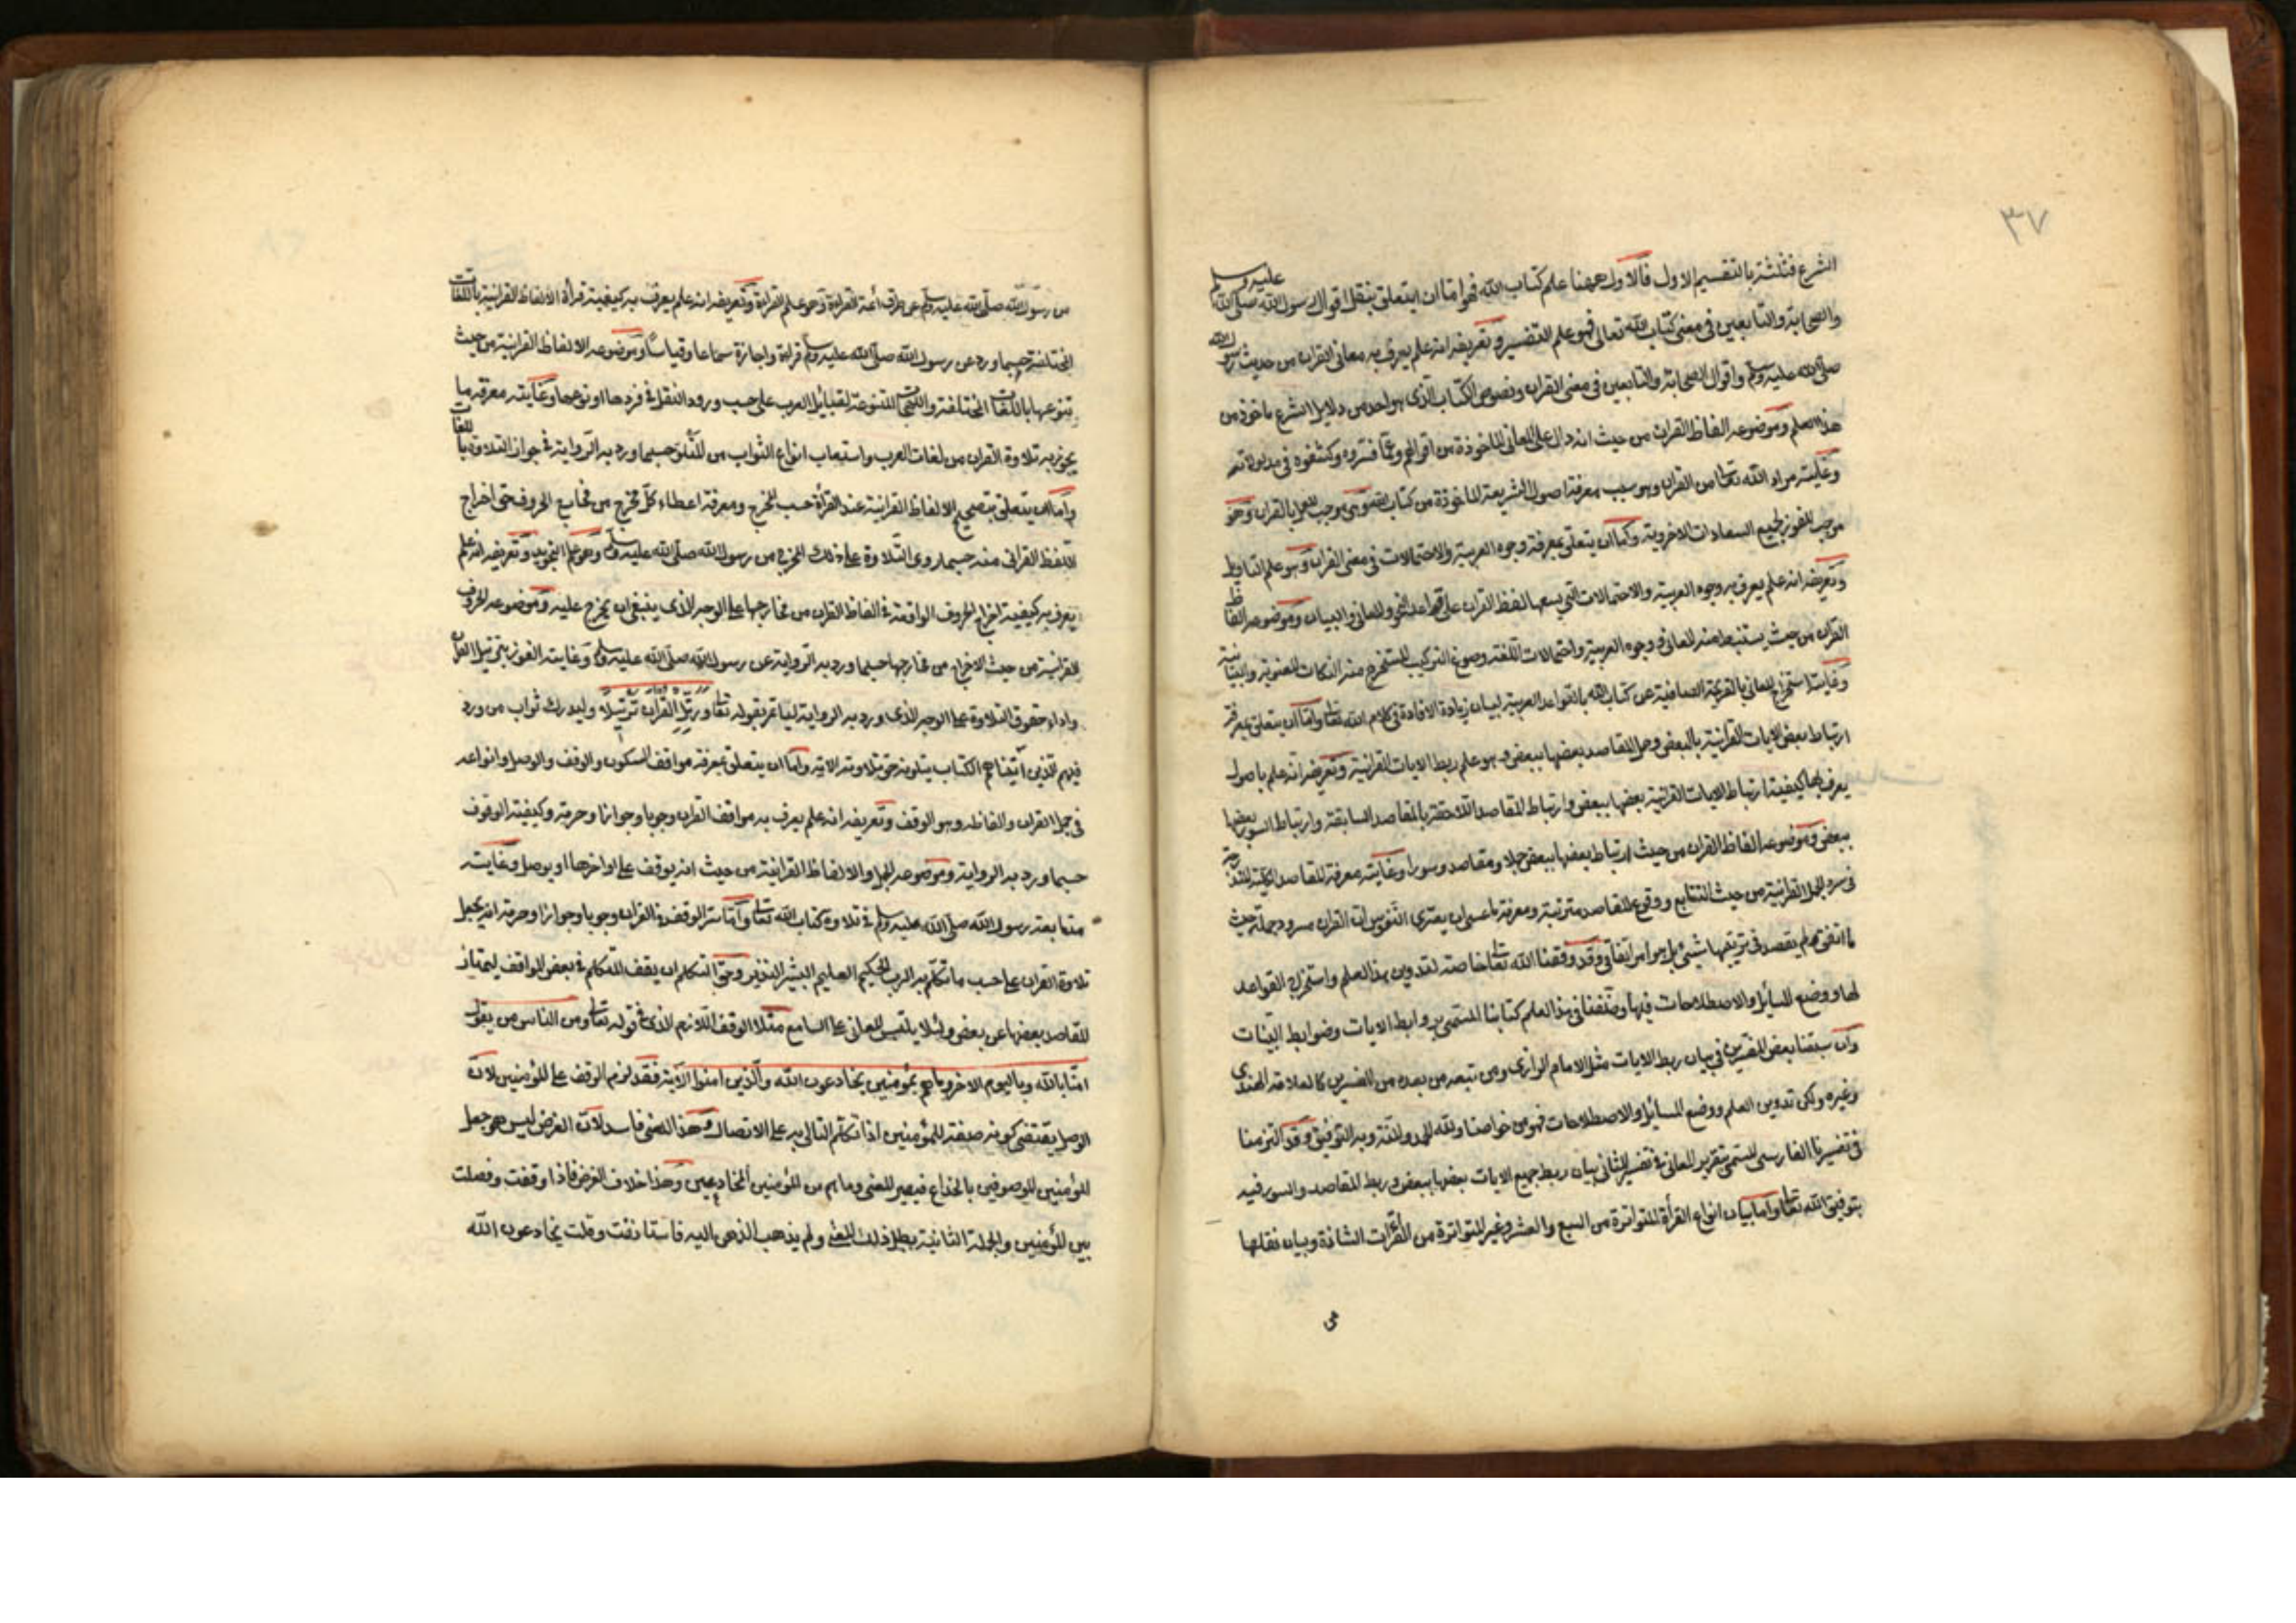 ٣٧
الشرع فثلثة بالتقسيم الاول فالاول ههنا علم كتاب الله فهو اما ان يتعلق بنقل اقوال رسول الله صلى الله عليه وسلم
والصحابة والتابعين فى معنى كتاب الله تعالى فهو علم التفسير وتعريفه انه علم يعرف به معانى القران من حديث رسول الله
صلى الله عليه وسلم واقوال الصحابة والتابعين فى معنى القران ونصوص الكتاب الذى هو احد من دلايل الشرع ماخوذ من
هذا العلم وموضوعه الفاظ القران من حيث انه دال على المعانى الماخوذة من اقوالهم وعما فسروه وكشفوه فى مدلولاته
وغايته مراد الله تعا من القران وهو سبب معرفة اصول الشريعة الماخوذة من كتاب الله وهى موجب للعمل بالقران وهو
موجب للفوز لجميع السعادات الاخروية واما ان يتعلق بمعرفة وجوه العربية والاحتمالات فى معنى القران وهو علم التاويل
وتعريفه انه علم يعرف به وجوه العربية والاحتمالات التى يسعها لفظ القران على قواعد النحو والمعانى والبيان وموضوعه الفاظ
القران من حيث يستنبط منه المعانى فى وجوه العربية واحتمالات اللغة وصوغ التركيب المستخرج منه النكات المعنوية والبيانية
وغايته استخراج المعانى بالقريحة الصافية عن كتاب الله بالقواعد العربية لبيان زيادة الافادة فى كلام الله تعا واما ان يتعلق بمعرفة
ارتباط بعض الايات القرآنية بالبعض وحل المقاصد بعضها ببعض وهو علم ربط الايات القرانية وتعريفه انه علم باصول
يعرف بها كيفية ارتباط الايات القرانية بعضها ببعض وارتباط المقاصد اللاحقة بالمقاصد السابقة وارتباط السور بعضها
ببعض وموضوعه الفاظ القران من حيث ارتباط بعضها ببعض جملا ومقاصد وسورا وغايته معرفة المقاصد الكلية المندرجة
فى سرد الجمل القرانية من حيث التتابع ووقوع المقاصد مترتبة ومعرفة ما عسى ان يعترى النفوس ان القران مسرود جملة حيث
ما اتفق ولم يقصد فى ترتيبها شيئ بل هو امر اتفاقى وقد وفقنا الله تعا خاصة لتدوين هذا العلم واستخراج القواعد
لها ووضع المسايل والاصطلاحات فيها وصنفنا فى هذا العلم كتابنا المسمى بروابط الايات وضوابط البينات
وان سبقنا بعض المفسرين فى بيان ربط الايات مثل الامام الرازى ومن تبعه من بعده من المفسرين كالعلامة الهندى
وغيره ولكن تدوين العلم ووضع المسايل والاصطلاحات فهو من خواصنا ولله الحمد والمنة وبه التوفيق وقد التزمنا
فى تفسيرنا الفارسى المسمى بتقرير المعانى فى تفسير المثانى بيان ربط جميع الايات بعضها ببعض وربط المقاصد والسور فيه
بتوفيق الله تعا واما بيان انواع القرأة المتواترة من السبع والعشر وغير المتواترة من القرأت الشاذة وبيان نقلها
من رسول الله صلى الله عليه وسلم عن طرف ائمة القراءة وهو علم القراءة وتعريفه انه علم يعرف به كيفية قرأة الالفاظ القرانية باللغات
المختلفة حسبما ورد عن رسول الله صلى الله عليه وسلم قراءة واجازة سماعا وقياسا وموضوعه الالفاظ القرانية من حيث
تنوعها باللغات المختلفة واللهجات المتنوعة لقبائل العرب على حسب ورود النقل فى فردها او نوعها وغايته معرفة ما
يجوز به تلاوة القران من لغات العرب واستيعاب انواع الثواب من المتلو حسبما ورد به الرواية فى جواز التلاوة باللغات
واما ان يتعلق بتصحيح الالفاظ القرانية عند القرأة حسب المخرج ومعرفة اعطاء كل مخرج من مخارج الحروف حتى اخراج
اللفظ القرانى منه حسبما روى التلاوة على ذلك المخرج من رسول الله صلى الله عليه وسلم وهو علم التجويد وتعريفه انه علم
يعرف به كيفية اخراج الحروف الواقعة فى الفاظ القران من مخارجها على الوجه الذى ينبغى ان يخرج عليه وموضوعه الحروف
القرانية من حيث الاخراج من مخارجها حسبما ورد به الرواية عن رسول الله صلى الله عليه وسلم وغايته الفوز بترتيل القران
واداء حقوق التلاوة على الوجه الذى ورد به الرواية ليأتمر بقوله تعا ورتل القرآن ترتيلا وليدرك ثواب من ورد
فيهم الذين آتيناهم الكتاب يتلونه حق تلاوته الاية واما ان يتعلق بمعرفة مواقف السكون والوقف والوصل وانواعه
فى جمل القران والفاظه وهو الوقف وتعريفه انه علم يعرف به مواقف القران وجوبا وجوازا وحرمة وكيفية الوقوف
حسبما ورد به الرواية وموضوعه الجمل والالفاظ القرانية من حيث انه يوقف على اواخرها او يوصل وغايته
متابعة رسول الله صلى الله عليه وسلم فى تلاوة كتاب الله تعا واما سر الوقف فى القران وجوبا وجوازا وحرمة انه يجعل
تلاوة القران على حسب ما تكلم به الرب الحكيم العليم البشير النذير وحق التكلم ان يقف المتكلم فى بعض المواقف ليمتاز
المقاصد بعضها عن بعض ولئلا يلتبس المعانى على السامع مثلا الوقف اللازم الذى فى قوله تعا ومن الناس من يقول
امنا بالله وباليوم الاخر وما هم بمؤمنين يخادعون الله والذين امنوا الآية فقد لزم الوقف على المؤمنين لان
الوصل يقتضى كونه صفة للمؤمنين اذا تكلم التالى به على الاتصال وهذا المعنى فاسد لان الغرض ليس هو جعل
المؤمنين الموصوفين بالخداع فيصير المعنى وما هم من المؤمنين المخادعين وهذا خلاف الغرض فاذا وقفت وفصلت
بين المؤمنين والجملة الثانية بطل ذلك المعنى ولم يذهب الذهن اليه فاستانفت وقلت يخادعون الله